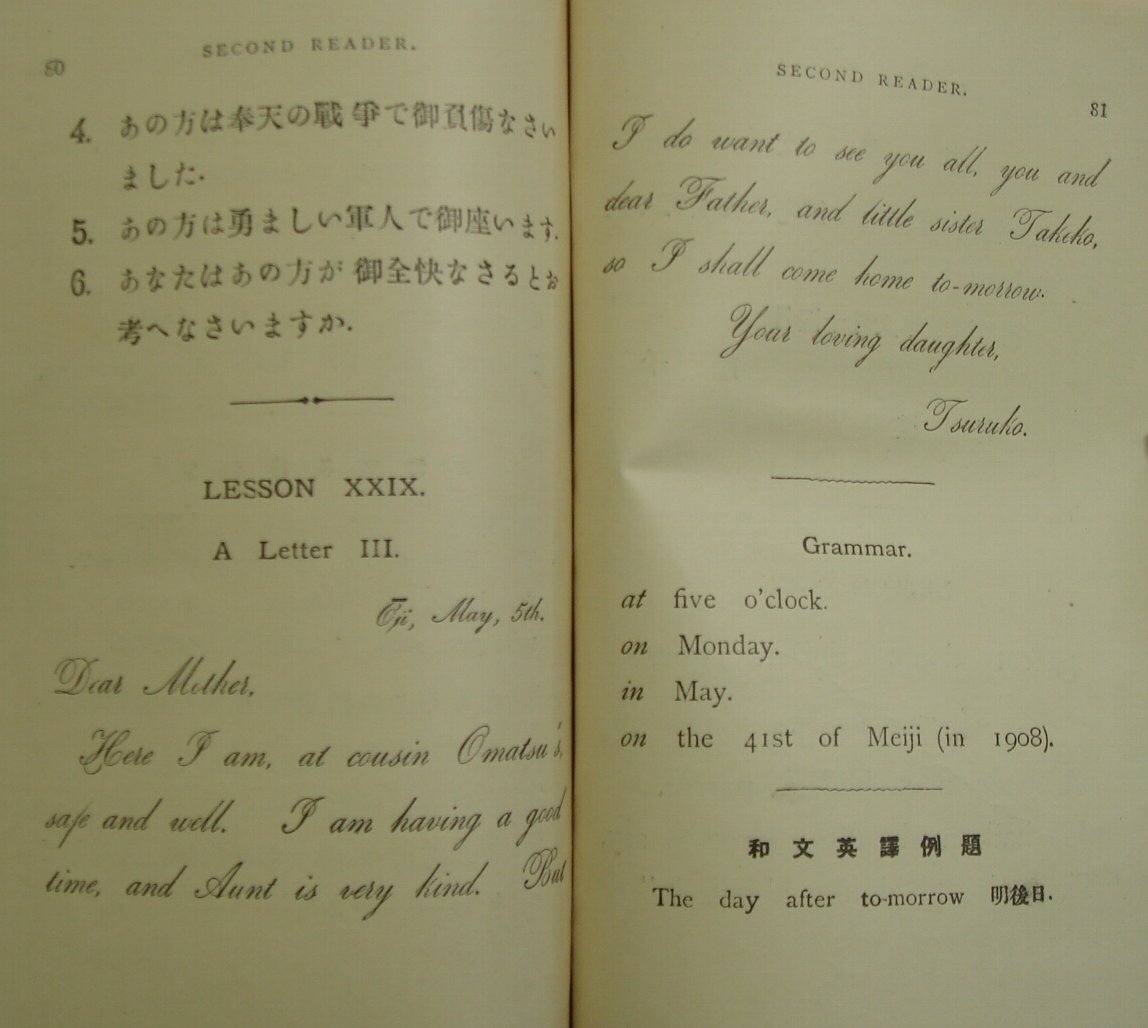 80
SECOND READER.
4. あの方は奉天の戰爭で御負傷なさい
ました.
5. あの方は勇ましい軍人で御座います.
6. あなたはあの方が御全快なさるとお
考へなさいますか.
LESSON XXIX.
A Letter III.
Ōji, May, 5th.
Dear Mother,
Here I am, at cousin Omatsu's,
safe and well. I am having a good
time, and Aunt is very kind. But
SECOND READER.
81
I do want to see you all, you and
dear Father, and little sister Takeko,
so I shall come home to-morrow.
Your loving daughter,
Tsuruko.
Grammar.
at five o'clock.
on Monday.
in May.
on the 41st of Meiji (in 1908).
和文英譯例題
The day after to-morrow 明後日.